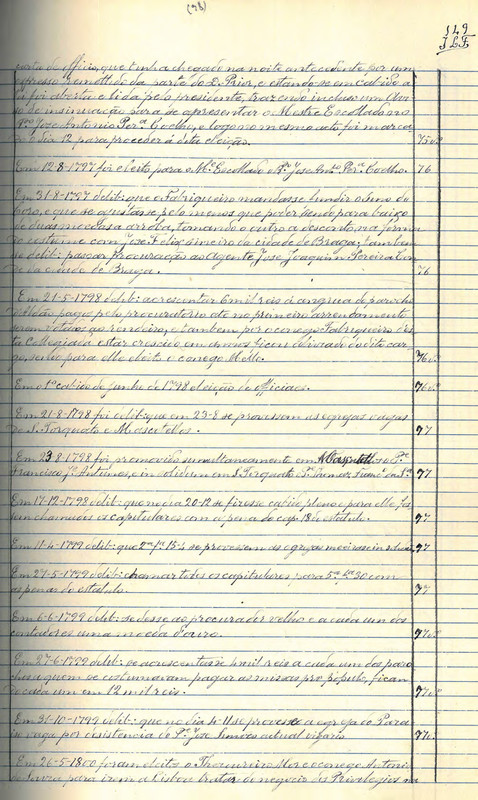 (98)
149
carta de officio, que tinha chegado na noite antecedente por um
expresso remettido da parte do D. Prior, e estando-se em cabido a
foi aberta e lida pelo presidente, trazendo incluso um Avi
so de insinuação para se apresentar o Mestre Escollado no
José Antonio Per.ª Coelho, e logo no mesmo acto foi marca
o dia 12 para proceder a esta eleição. 75 v.º
Em 12-8-1797 foi eleito para o M.e Escollado o P.e José Ant.º Per.ª Coelho. 76
Em 31-8-1797 delib: que o Fabriqueiro mandasse fundir o sino do
coro, e que se ajustasse pelo menos que poder sendo para baixo
de duas moedas a arroba, tomando o outro a desconto, na forma
do costume com José Felix sineiro da cidade de Braga; tambem
se delib: passar procuração ao Agente, José Joaquim Pereira
da cidade de Braga. 76
Em 21-5-1798 delib: acrescentar 6 mil reis á congrua do parocho
pagos pelo procuratorio até no primeiro arrendamento
serem ao rendeiro, e tambem por o conego Fabriqueiro des
ta Collegiada estar crescido em annos ficou alliviado do dito car
go, sendo para elle eleito o conego Mello. 76 v.º
Em o 1.º cabido de junho de 1798 eleição de officiaes. 76 v.º
Em 21-8-1798 foi delib: que em 23-8 se provessem as egrejas vagas
de S. Torquato e Mascotellos. 77
Em 23-8-1798 foi promovido simultaneamente em Mascotellos o P.e
Francisco J.e Antunes, e in solidum em S. Torquato P.e 77
Em 17-12-1798 delib: que no dia 20-12 se fizesse cabido pleno, e para elle fos
sem chamados os capitulares com a pena do cap. 18 do estatuto. 77
Em 11-4-1799 delib: que 2.ª f.ª 15-4 se provessem as egrejas 77
Em 27-5-1799 delib: chamar todos os capitulares para 5.ª f.ª 30 com
as penas do estatuto. 77
Em 6-6-1799 delib: se désse ao procurador velho e a cada um dos
contadores uma moeda d'ouro. 77 v.º
Em 27-6-1799 delib: se acrescentasse mil reis a cada um dos paro
chos a quem se costumaram pagar as missas pro populo, fican
do cada um em 12 mil reis. 77 v.º
Em 31-10-1799 delib: que no dia 4-11 se provesse a egreja do Parai
so vaga por desistencia do P.e José Simões actual vigario. 77 v.º
Em 26-5-1800 foram eleitos o Thesoureiro Mór e o conego Antonio
para irem a Lisboa tratar do negocio dos Privilegios na